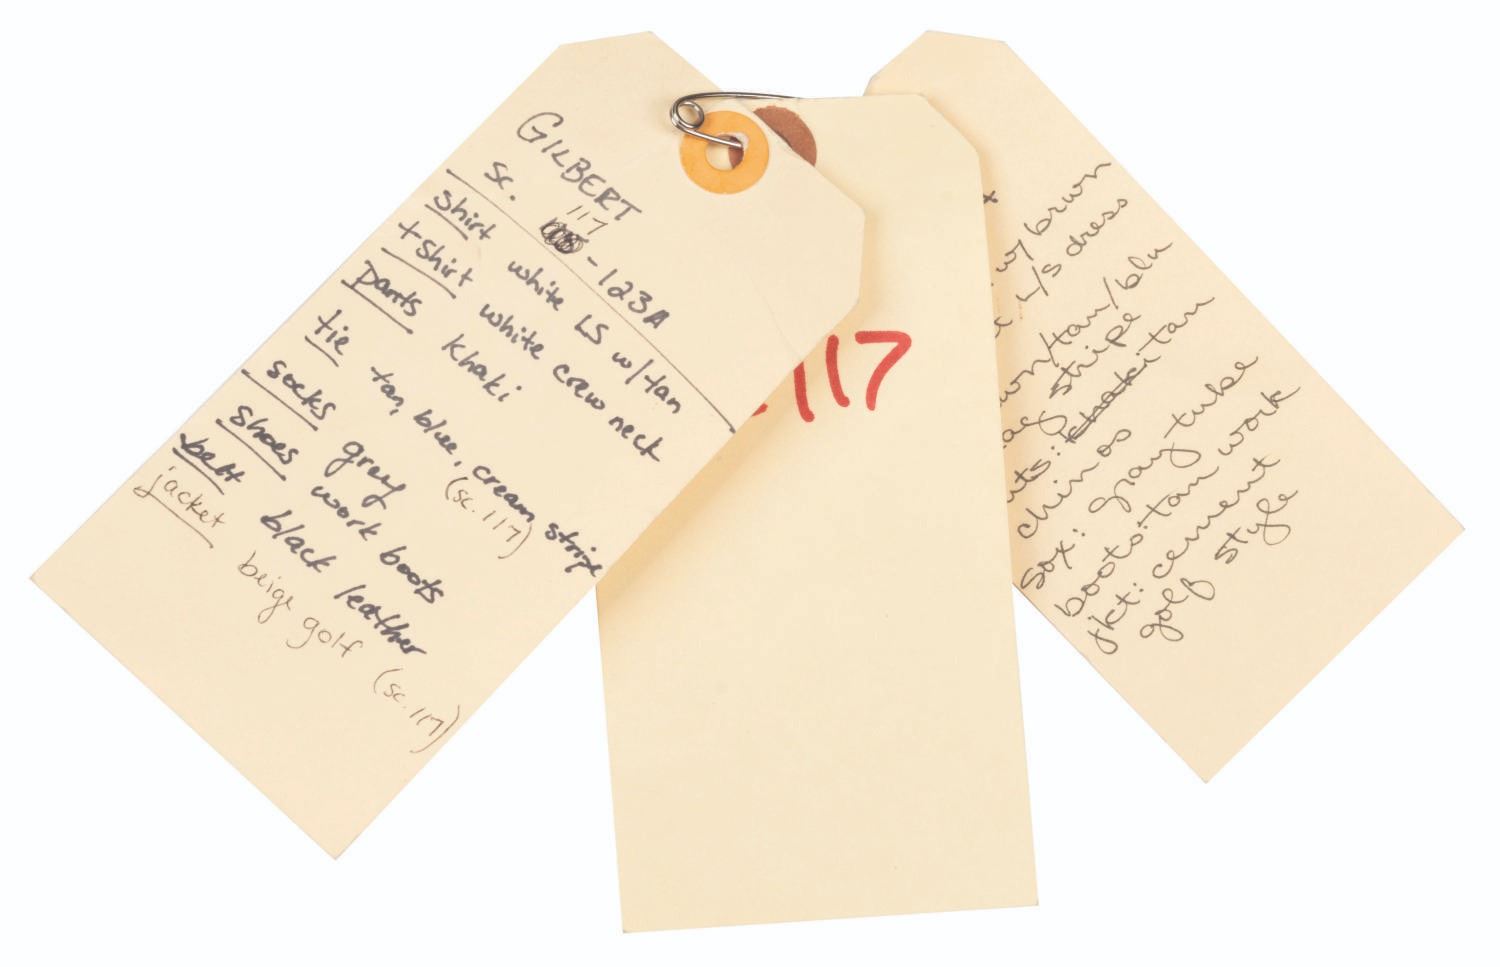 GILBERT
sc. 117 - 123A
shirt white LS w/tan
t shirt white crew neck
pants khaki
tie tan, blue, cream stripe
(sc. 117)
socks gray
shoes work boots
belt black leather
jacket beige golf (sc. 117)
117
w/ brown
L/S dress
/tan/blu
stripe
khaki tan
chinos
sox: gray tube
boots: tan work
jkt: cement
golf style